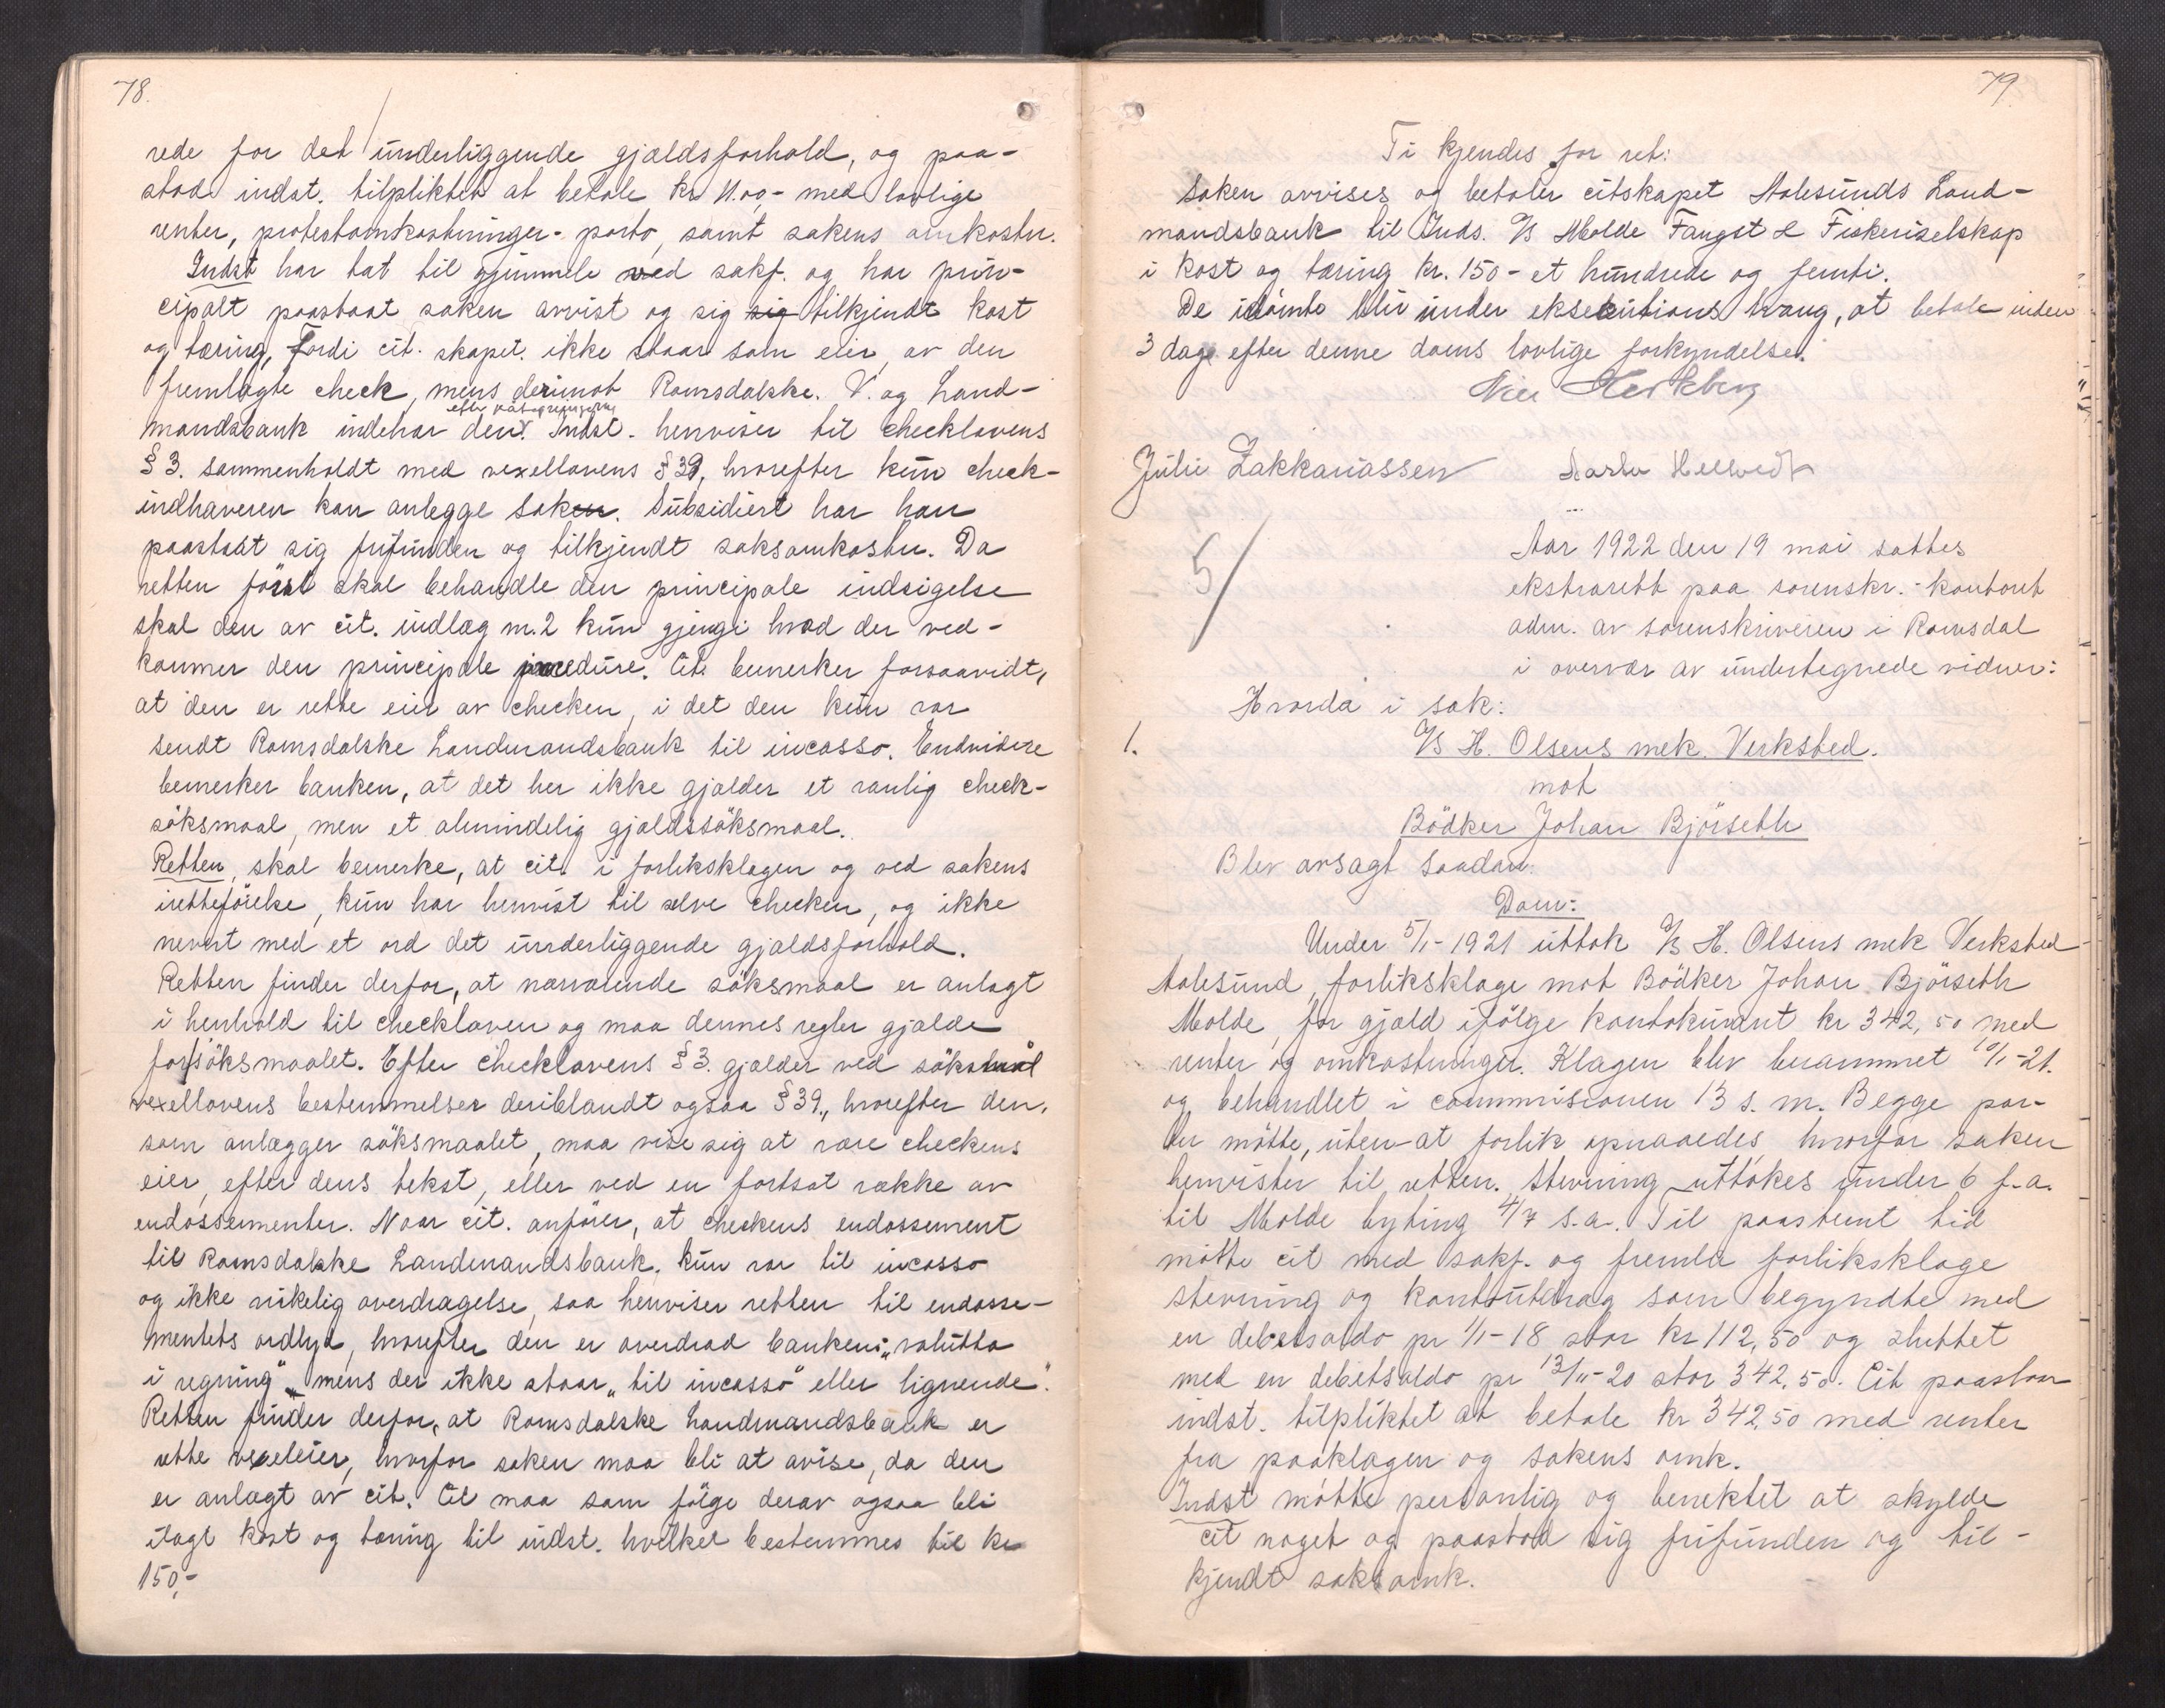 78.
rede for det underliggende gjældsforhold, og paa-
stod indst. tilpliktet at betale kr. med lovlige
renter, protestomkostninger - porto, samt sakens omkostn.
Indst har tat til gjenmæle ved sakf. og har prin-
cipalt paastaat saken avvist og sig sig tilkjendt kost
og tæring, Fordi cit. skapet. ikke staar som eier av den
fremlagte check, mens derimot Romsdalske. V. og Land-
mandsbank indehar den. Indst. henviser til checklovens
§ 3. sammenholdt med vexellovens § 39, hvorefter kun check-
indhaveren kan anlegge saken. Subsidiert har han
paastaat sig frifunden og tilkjendt saksomkostn. Da
retten först skal behandle den principale indsigelse
skal den av cit. indlæg nr. 2 kun gjengi hvad der ved-
kommer den principale procedure. Cit. bemerker forsaavidt,
at den er rette eier av checken, i det den kun var
sendt Romsdalske Landmandsbank til incasso. Endvidere
bemerker banken, at det her ikke gjælder et vanlig check-
söksmaal, men et almindelig gjældssöksmaal.
Retten, skal bemerke, at cit. i forliksklagen og ved sakens
iretteförelse, kun har henvist til selve checken, og ikke
nevnt med et ord det underliggende gjældsforhold.
Retten finder derfor, at nærværende söksmaal er anlagt
i henhold til checkloven og maa dennes regler gjælde
for söksmaalet. Efter checklovens § 3. gjælder ved söksmaal
vexellovens bestemmelser deriblandt ogsaa § 39., hvorefter den,
som anlægger söksmaalet, maa vise sig at være checkens
eier, efter dens tekst, eller ved en fortsat række av
endossementer. Naar cit. anförer, at checkens endossement
til Romsdalske Landmandsbank, kun var til incasso
og ikke virkelig overdragelse, saa henviser retten til endosse-
mentets ordlyd, hvorefter den er overdrad banken: "valutta
i regning" mens der ikke staar "til incasso" eller lignende".
Retten finder derfor, at Romsdalske Landmandsbank er
rette vexeleier, hvorfor saken maa bli at avise, da den
er anlagt av cit. Cit maa som fölge derav ogsaa bli
ilagt kost og tæring til indst. hvilket bestemmes til kr
150,-
79.
Ti kjendes for ret:
Saken avvises og betaler citskapet Aalesunds Land-
mandsbank til Inds. A/S Molde Fangst & Fiskeriselskap
i kost og tæring kr. 150 - et hundrede og femti.
De idömte blir under eksekutions tvang, at betale inden
3 dage efter denne doms lovlige forkyndelse.
Julie Zakkariassen
5/
Aar 1922 den 19 mai sattes
ekstrarett paa sorenskr. - kontoret
adm. av sorenskriveren i Romsdal
i overvær av undertegnede vidner:
Hvorda i sak:
1. A/S H. Olsens mek. Verksted.
mot
Bödker Johan Björseth
Blev avsagt saadan:
Dom:
Under 5/1-1921 uttok A/S H. Olsens mek Verksted
Aalesund, forliksklage mot Bödker Johan Björseth
Molde, for gjæld ifölge kontokurant kr 342,50 med
renter og omkostninger. Klagen blev berammet 10/1-21.
og behandlet i commissionen 13 s. m. Begge par-
ter mötte, uten at forlik opnaaedes, hvorfor saken
henvistes til retten. Stevning uttökes under 6 f.a.
til Molde byting 4/7 s.a. Til paastemt tid
mötte cit med sakf. og fremla forliksklage
stevning og kontoutdrag som begyndte med
en debetsaldo pr 1/1-18 stor kr 112,50 og sluttet
med en debetsaldo pr 13/11-20 stor 342,50. Cit paastod
indst. tilpliktet at betale kr 342,50 med renter
fra paaklagen og sakens omk.
Indst mötte personlig og benektet at skylde
cit noget og paastod sig frifunden og til-
kjendt saksomk.